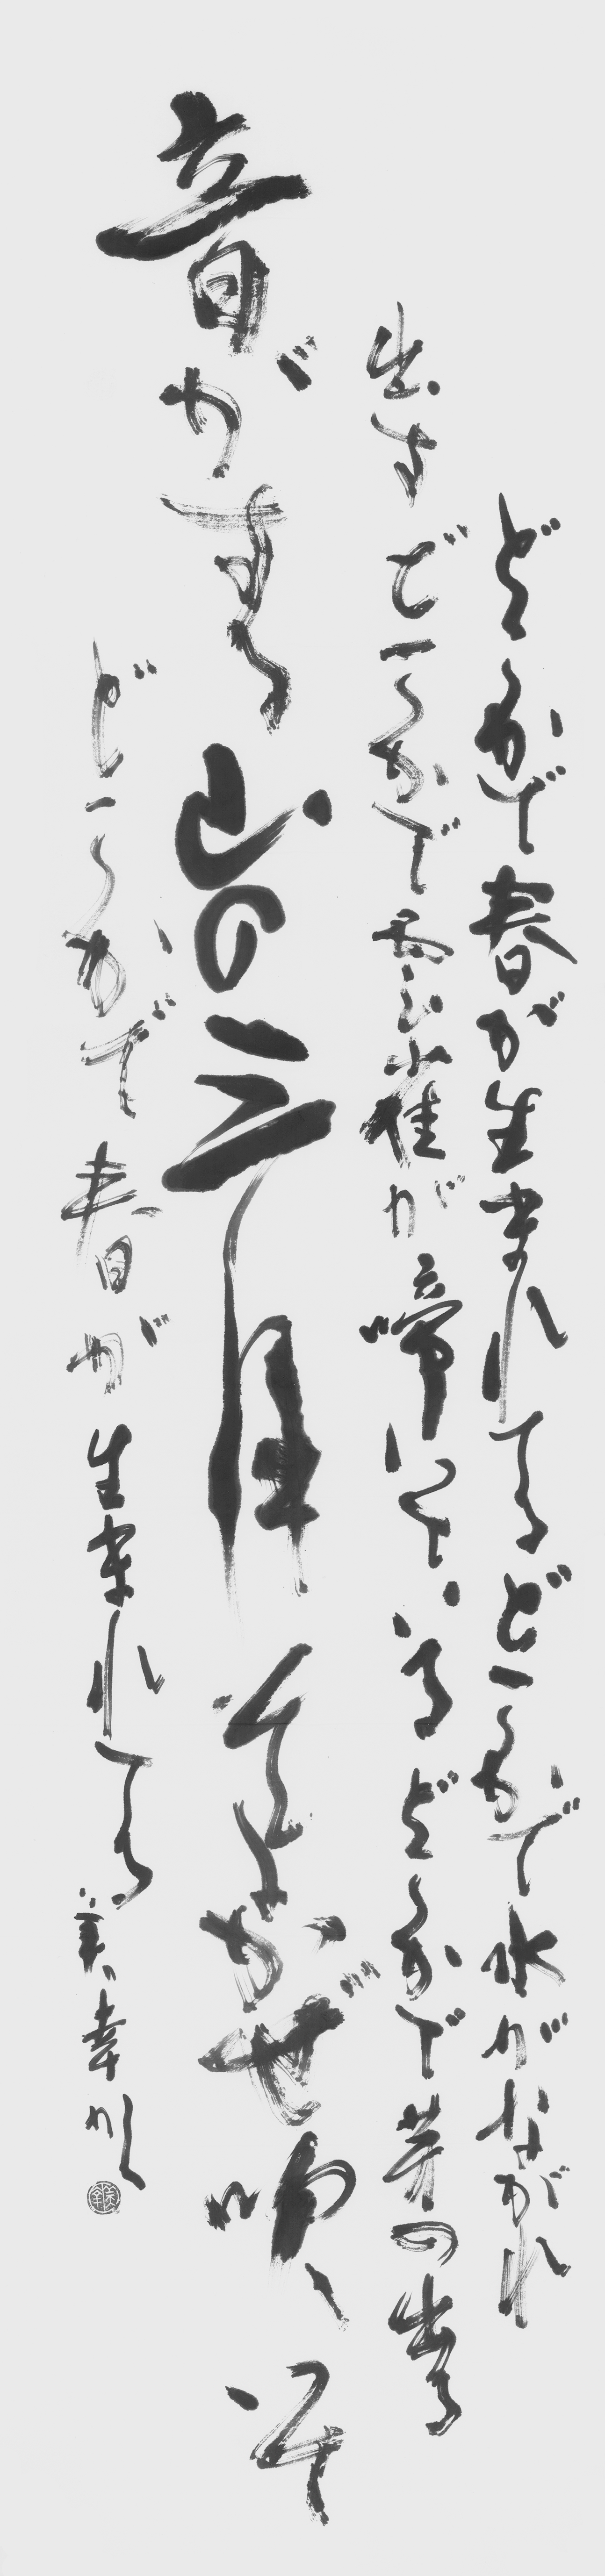 どこかで春が生まれてるどこかで水がながれ
出すどこかで雲雀が啼いているどこかで芽の出る
音がする山の三月そよかぜ吹いて
どこかで春が生まれてる 美幸かく